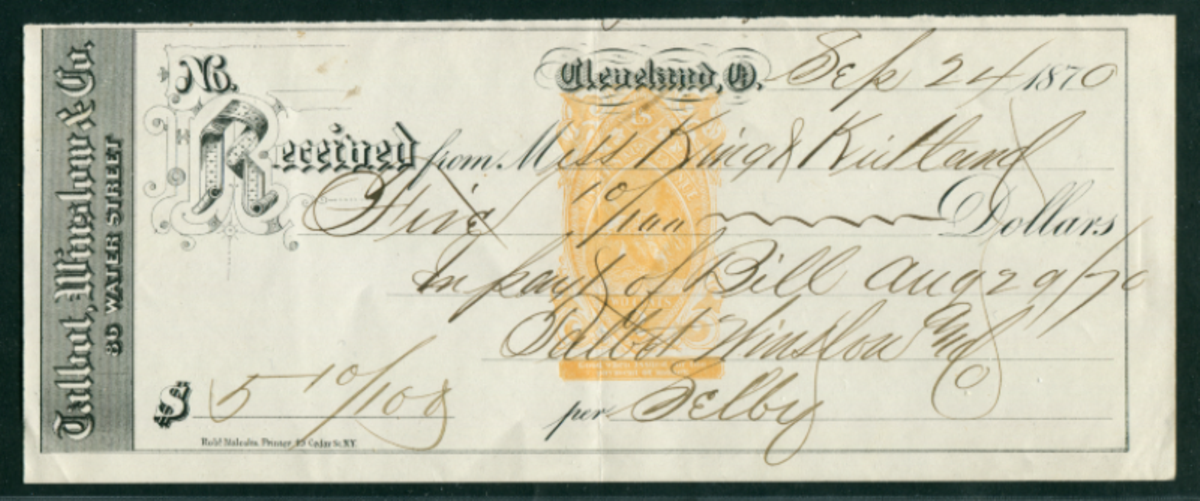 Talbot, Winslow & Co,
80 WATER STREET
No.
Cleveland, O. Sep 24 1870
Received from Mess King & Kirtland
Five 10/100 Dollars
In payt of Bill Aug 29/70
Talbot Winslow & Co
$ 5 10/100 per Selby
Robt Malcolm Printer, Cedar St. N.Y.